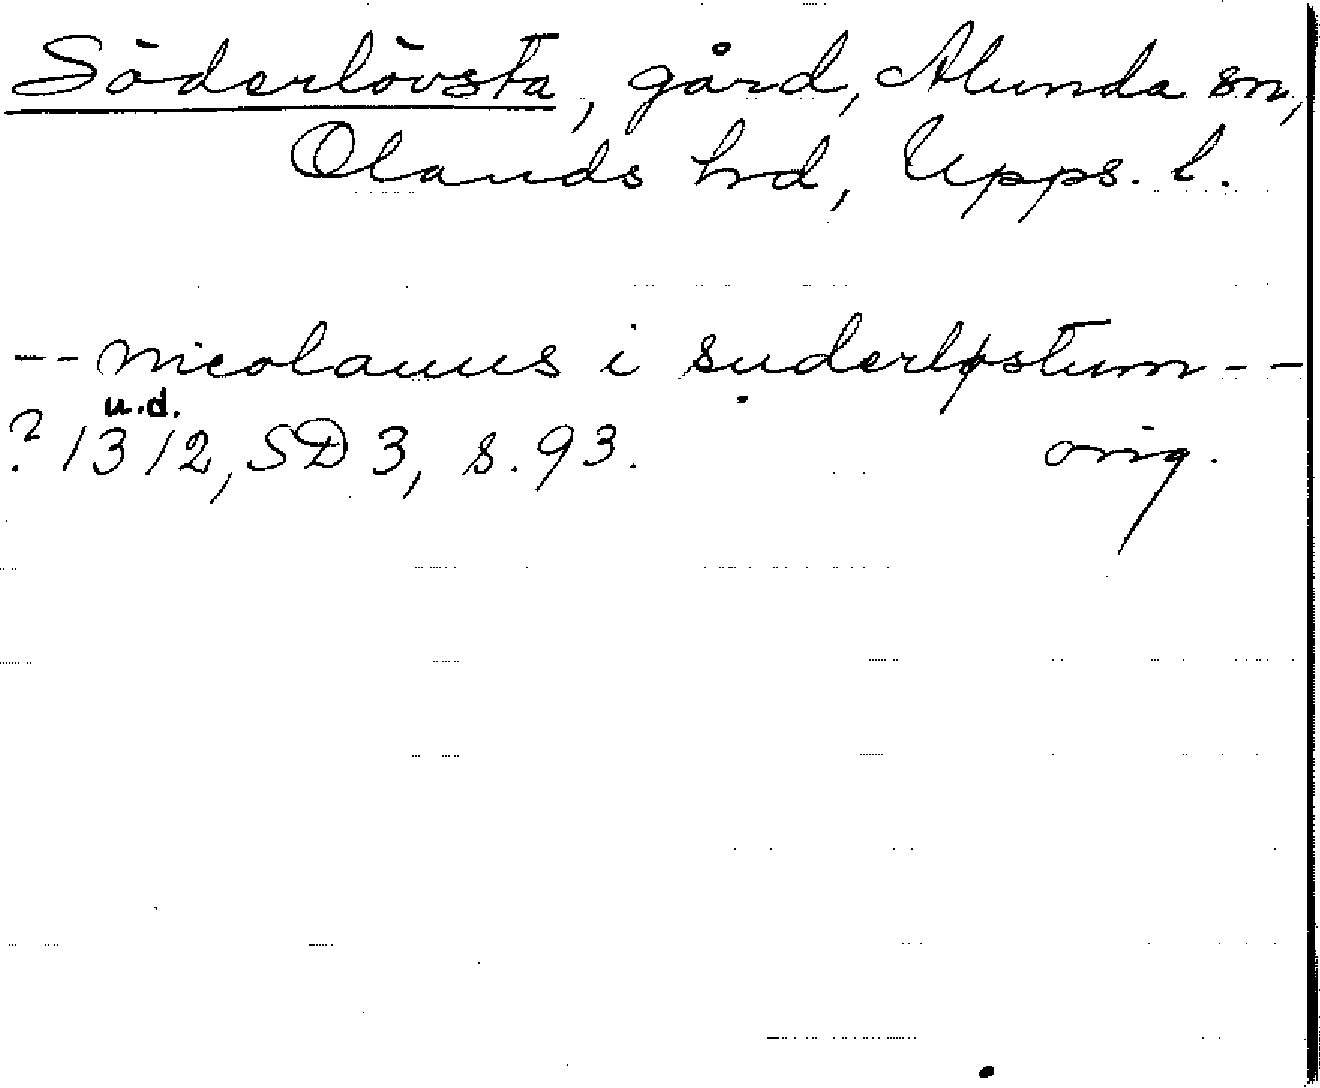 Söderlövsta, gård, Alunda sn,
Olands hrd, Upps. l.
-- nicolaums i suderløstum --
u.d.
? 1312, SD 3, s. 93. orig.